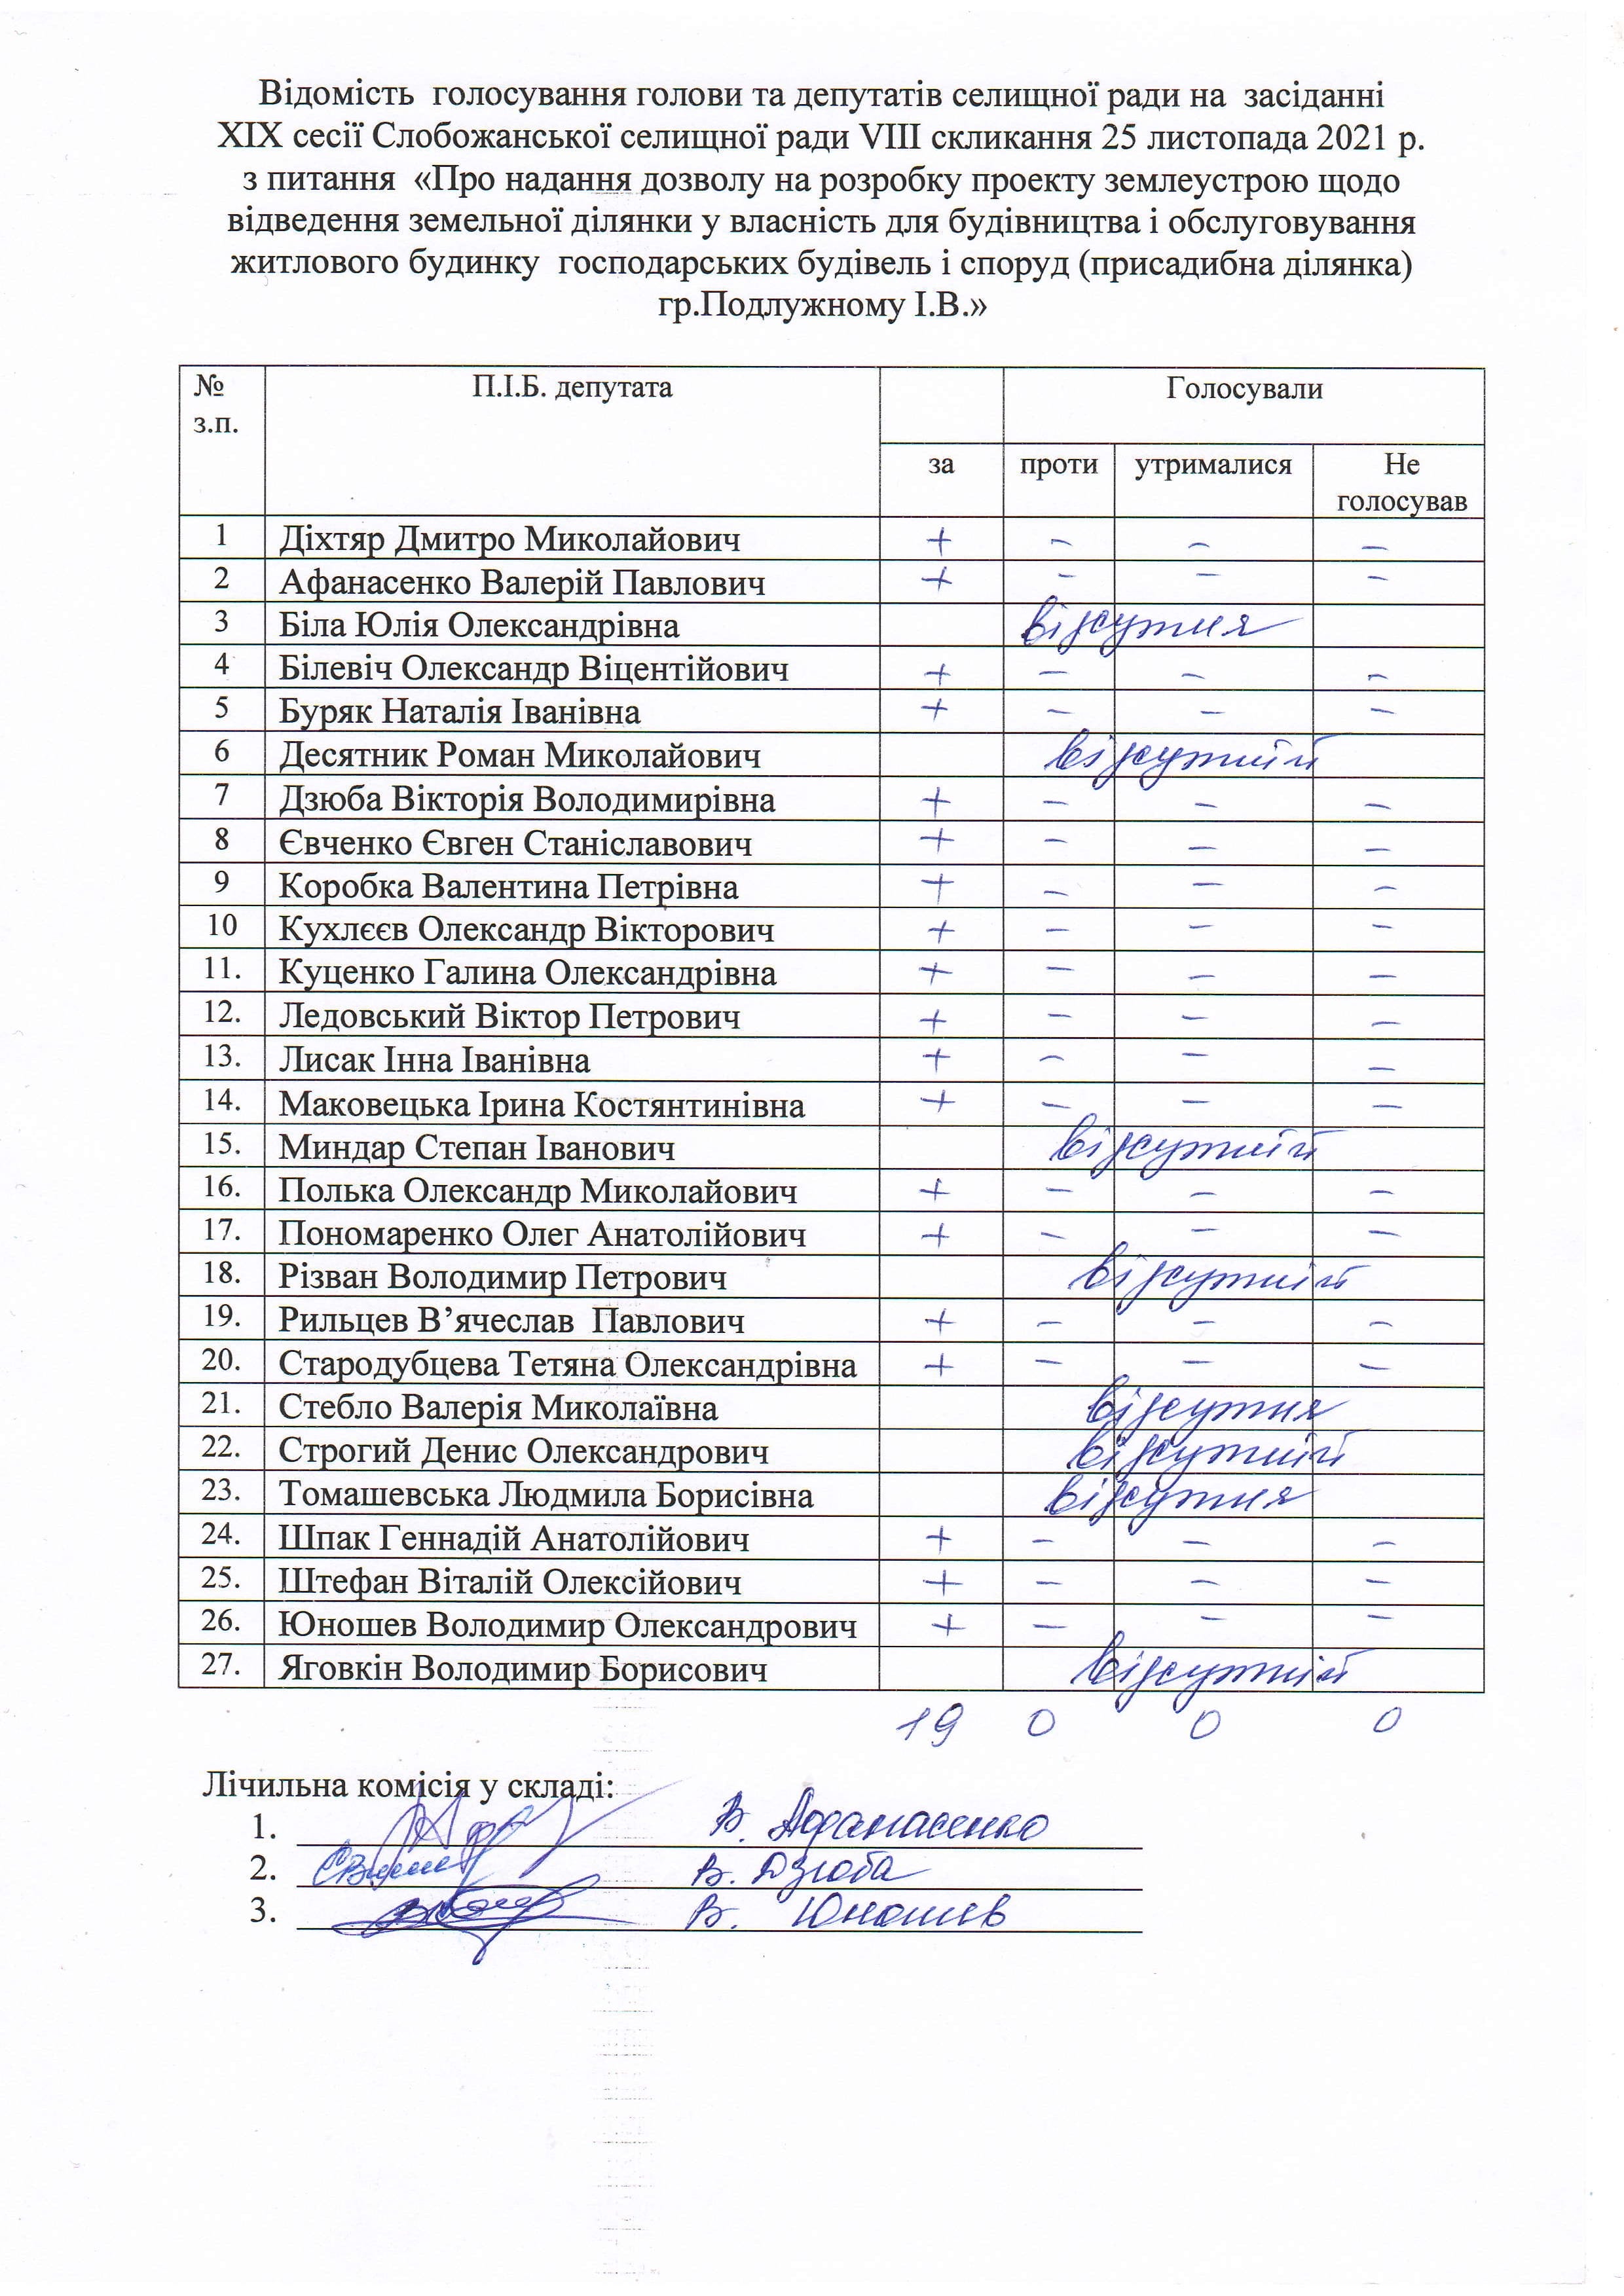 Відомість голосування голови та депутатів селищної ради на засіданні
XIX сесії Слобожанської селищної ради VIII скликання 25 листопада 2021 р.
з питання «Про надання дозволу на розробку проекту землеустрою щодо
відведення земельної ділянки у власність для будівництва і обслуговування
житлового будинку господарських будівель і споруд (присадибна ділянка)
гр.Подлужному І.В.»
№ з.п. П.І.Б. депутата Голосували
за проти утрималися Не голосував
1 Діхтяр Дмитро Миколайович + – – –
2 Афанасенко Валерій Павлович + – – –
3 Біла Юлія Олександрівна відсутня
4 Білевіч Олександр Віцентійович + – – –
5 Буряк Наталія Іванівна + – – –
6 Десятник Роман Миколайович відсутній
7 Дзюба Вікторія Володимирівна + – – –
8 Євченко Євген Станіславович + – – –
9 Коробка Валентина Петрівна + – – –
10 Кухлєєв Олександр Вікторович + – – –
11. Куценко Галина Олександрівна + – – –
12. Ледовський Віктор Петрович + – – –
13. Лисак Інна Іванівна + – – –
14. Маковецька Ірина Костянтинівна + – – –
15. Миндар Степан Іванович відсутній
16. Полька Олександр Миколайович + – – –
17. Пономаренко Олег Анатолійович + – – –
18. Різван Володимир Петрович відсутній
19. Рильцев В’ячеслав Павлович + – – –
20. Стародубцева Тетяна Олександрівна + – – –
21. Стебло Валерія Миколаївна відсутня
22. Строгий Денис Олександрович відсутній
23. Томашевська Людмила Борисівна відсутня
24. Шпак Геннадій Анатолійович + – – –
25. Штефан Віталій Олексійович + – – –
26. Юношев Володимир Олександрович + – – –
27. Яговкін Володимир Борисович відсутній
19 0 0 0
Лічильна комісія у складі:
1. В. Афанасенко
2. В. Дзюба
3. В. Юношев